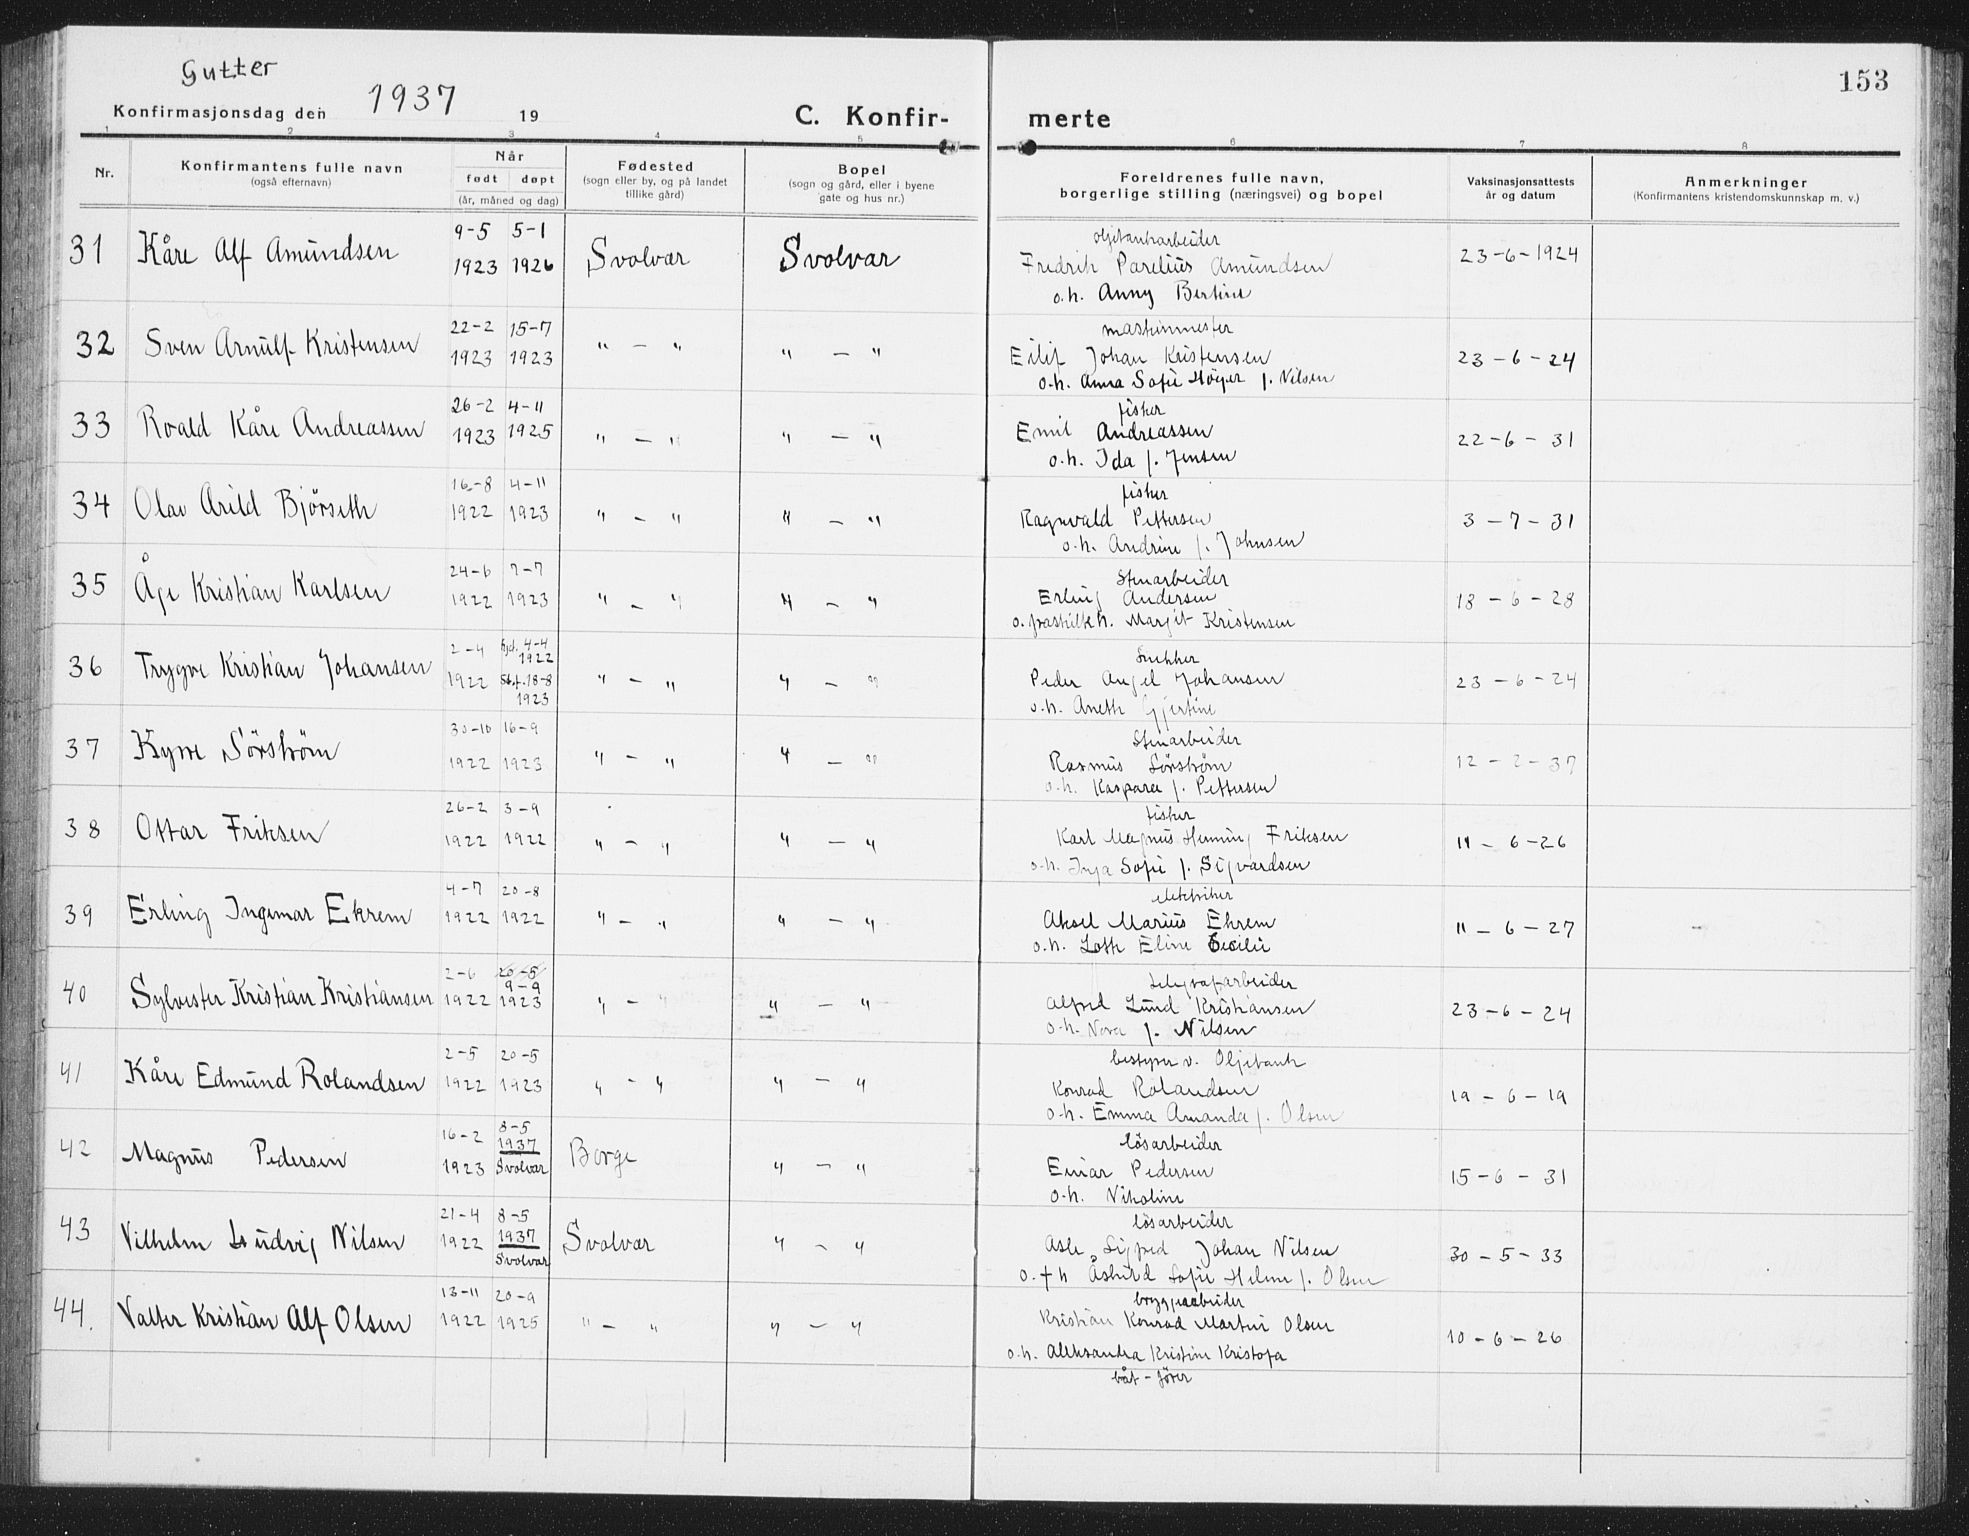 Gutter
153
Konfirmasjonsdag den 1937 19
C. Konfir- merte
1 2 3 4 5 6 7 8
Nr.
Konfirmantens fulle navn
(også efternavn)
Når
født døpt
(år, måned og dag)
Fødested
(sogn eller by, og på landet
tillike gård)
Bopel
(sogn og gård, eller i byene
gate og hus nr.)
Foreldrenes fulle navn,
borgerlige stilling (næringsvei) og bopel
Vaksinasjonsattests
år og datum
Anmerkninger
(Konfirmantens kristendomskunnskap m. v.)
9-5 5-1 oljetankarbeider
31 Kåre Alf Amundsen 1923 1926 Svolvær Svolvær Fredrik Parelius Amundsen 23-6-1924
o.h. Anny Bertine
22-2 15-7 maskinmester
32 Sven Arnulf Kristensen 1923 1923 " - " " - " Eilif Johan Kristensen 23-6-24
o.h. Anna Sofie Höyer f. Nilsen
26-2 4-11 fisker
33 Roald Kåre Andreassen 1923 1925 " - " " - " Emil Andreassen 22-6-31
o.h. Ida f. Jensen
16-8 4-11 fisker
34 Olav Arild Bjørseth 1922 1923 " - " " - " Ragnvald Pettersen 3-7-31
o.h. Andrine f. Johnsen
24-6 7-7 Stenarbeider
35 Åge Kristian Karlsen 1922 1923 " - " " - " Erling Andersen 18-6-28
o. fraskilt h. Margit Kristensen
2-4 hjd. 4-4 1922 Snekker
36 Trygve Kristian Johansen 1922 St.f. 18-8 1923 " - " " - " Peder Angel Johansen 23-6-24
o.h. Aneth Gjertine
30-10 16-9 Stenarbeider
37 Kyrre Sörström 1922 1923 " - " " - " Rasmus Sörström 12-2-37
o.h. Kaspara f. Pettersen
26-2 3-9 fisker
38 Ottar Friksen 1922 1922 " - " " - " Karl Magnus Henning Friksen 11-6-26
o.h. Inga Sofie f. Sigvardsen
4-7 20-8 elektriker
39 Erling Ingemar Ekrem 1922 1922 " - " " - " Aksel Marius Ekrem 11-6-27
o.h. Lotte Eline Cecilie
2-6 20-5 9-9 telegrafarbeider
40 Sylvester Kristian Kristiansen 1922 1923 " - " " - " Alfred Lund Kristiansen 23-6-24
o.h. Nora f. Nilsen
2-5 20-5 bestyrer v. Oljetank
41 Kåre Edmund Rolandsen 1922 1923 " - " " - " Konrad Rolandsen 19-6-19
o.h. Emma Amanda f. Olsen
16-2 8-5 1937 lösarbeider
42 Magnus Pedersen 1923 Svolvær Borge " - " Einar Pedersen 15-6-31
o.h. Nikoline
21-4 8-5 lösarbeider
43 Vilhelm Ludvig Nilsen 1922 1937 Svolvær Svolvær " - " Asle Sigfred Johan Nilsen 30-5-33
o. + h Åshild Sofie Helene f. Olsen
13-11 20-9 bryggearbeider
44. Valter Kristian Alf Olsen 1922 1925 " - " " - " Kristian Konrad Martin Olsen 10-6-26
o.h. Aleksandra Kristine Kristofa
båt-fører